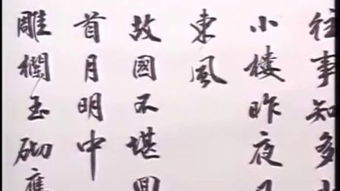 往事知多
小樓昨夜
東風
故國不堪回
首月明中
雕欄玉砌應